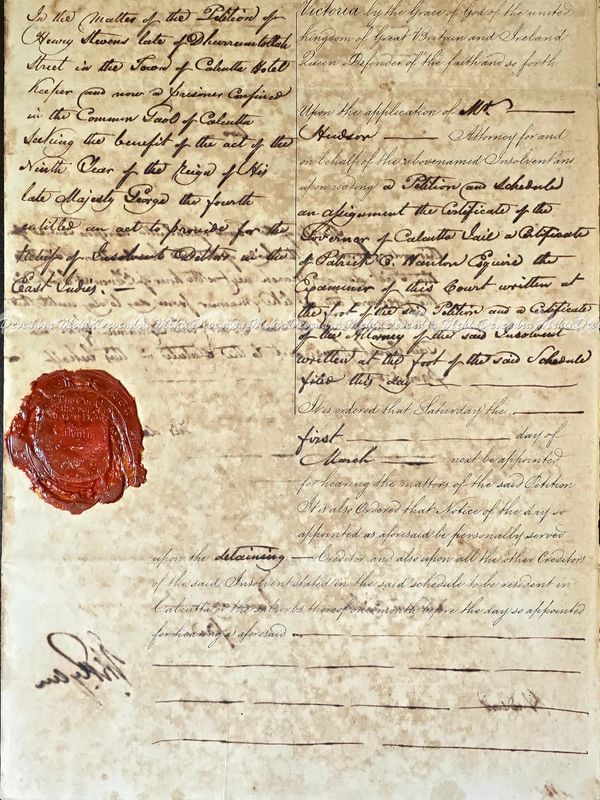 In the matter of the Petition of
Henry Stevens late of Dhurrumtollah
Street in the Town of Calcutta Hotel
Keeper and now a prisoner Confined
in the Common Gaol of Calcutta
seeking the benefit of the act of the
Ninth Year of the reign of His
late Majesty George the fourth
entitled an act to provide for the
relief of Insolvent Debtors in the
East Indies. —
Victoria by the Grace of God of the united
kingdom of Great Britain and Ireland
Queen Defender of the faith and so forth
Upon the application of Mr. —
Hudson — Attorney for and
on behalf of the abovenamed Insolvent and
upon reading a Petition and Schedule
an assignment the Certificate of the
Governor of Calcutta Jail a Certificate
of Patrick Esquire the
Examiner of this Court written at
the foot of the said Petition and a Certificate
of the Attorney of the said Insolvent
written at the foot of the said Schedule
filed this day —
It is ordered that Saturday the —
first — day of
March — next be appointed
for hearing the matters of the said Petition
It is also Ordered that Notice of the day so
appointed as aforesaid be personally served
upon the detaining — Creditor and also upon all the other Creditors
of the said Insolvent stated in the said schedule to be resident in
Calcutta or the suburbs thereof one month before the day so appointed
for hearing as aforesaid —
Devendra Mehta Devendra Mehta Devendra Mehta Devendra Mehta Devendra Mehta